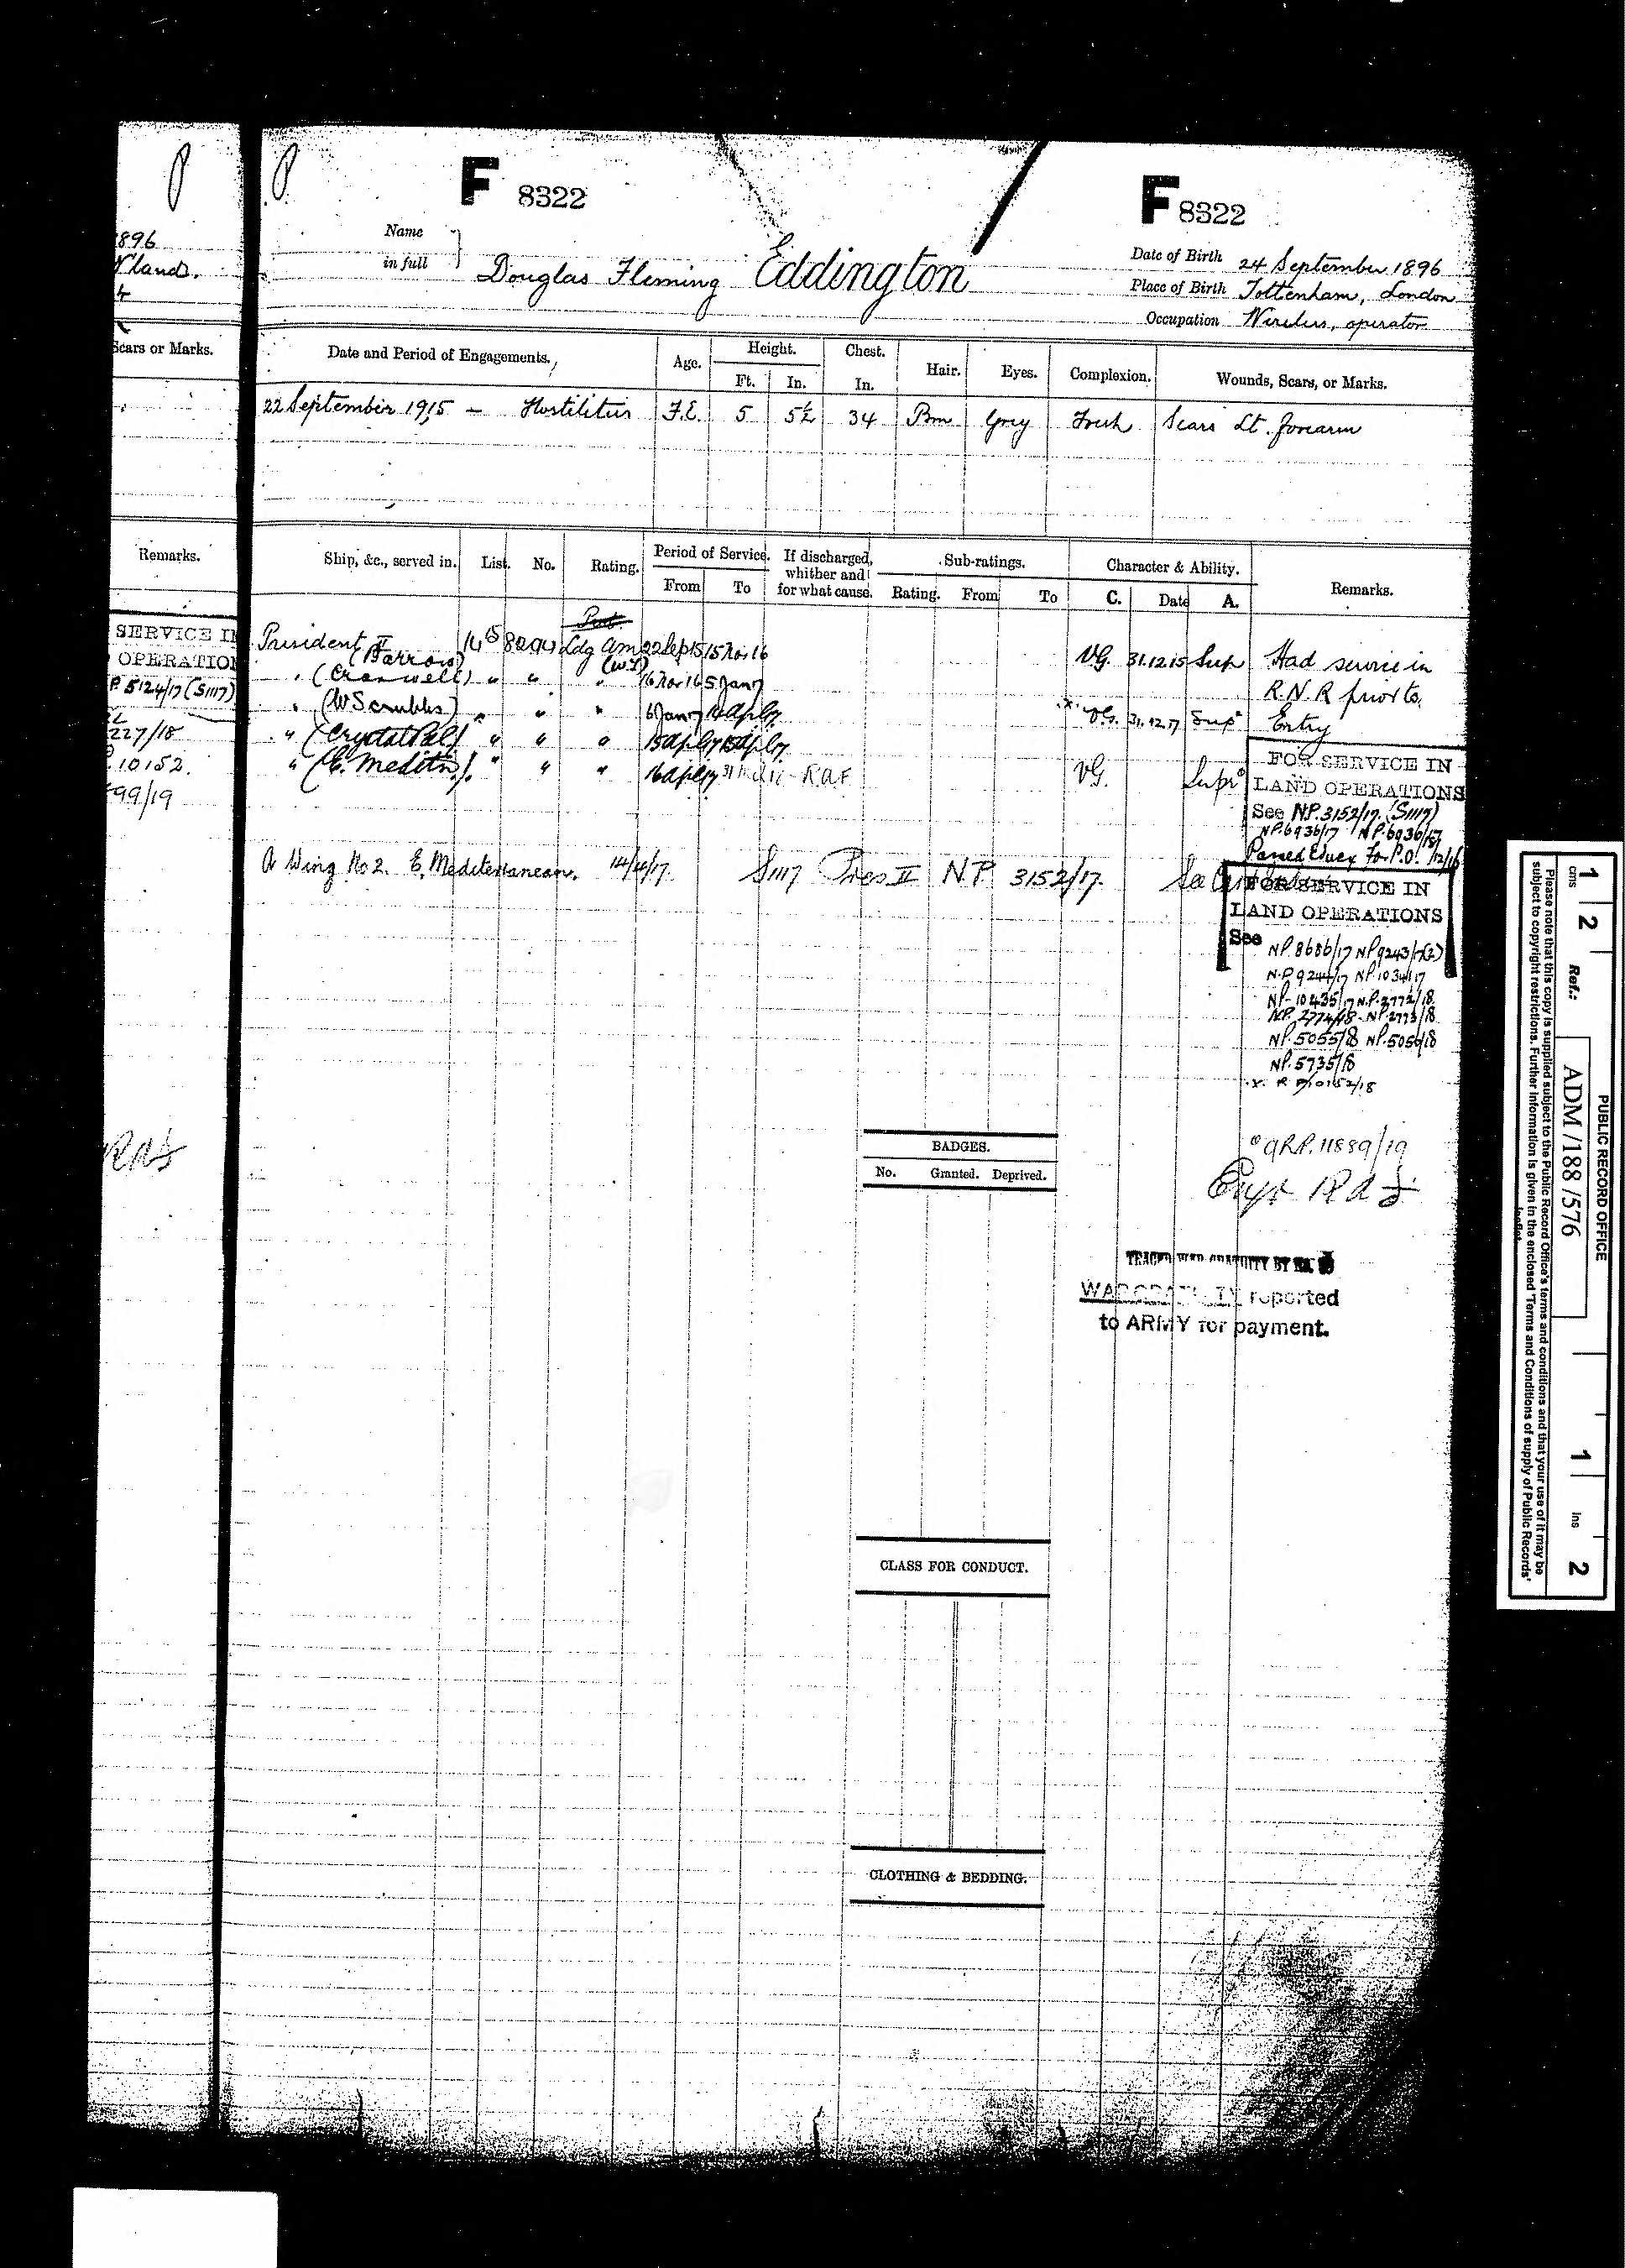 896
Scars or Marks.
Remarks.
SERVICE IN
OPERATION
P 5124/17 (S1117)
227/18
10152.
99/19
F 8322
F 8322
Name
in full
Douglas Fleming Eddington
Date of Birth 24 September 1896
Place of Birth Tottenham, London
Occupation Wireless operator
Date and Period of Engagements.
Age.
Height.
Ft. In.
Chest.
In.
Hair.
Eyes.
Complexion.
Wounds, Scars, or Marks.
22 September 1915 – Hostilities F.E. 5 5½ 34 Brn Grey Fresh Scars Lt. forearm
Ship, &c., served in.
List.
No.
Rating.
Period of Service.
From To
If discharged,
whither and
for what cause.
Sub-ratings.
Rating. From To
Character & Ability.
C. Date A.
Remarks.
President II 15 Ldg Am 22 Sep 15 15 Nov 16 VG. 31.12.15 Sup Had service in
(Barrow) (W.T)
" (Cranwell) " " " 16 Nov 16 5 Jan 17 R.N.R prior to
" (W Scrubbs) " " " 6 Jan 17 14 Apl 17 VG. 31.12.17 Supr Entry
" (Crystal Pal) " " " 15 Apl 17 15 Apl 17
" (E. Meditn.) " " " 16 Apl 17 31 RAF VG. Supr
FOR SERVICE IN
LAND OPERATIONS
See NP.3152/17. (S1117)
NP.6936/17 NP.6936/17
Passed Educ For P.O.
A Wing No 2. E. Mediterranean. 14/4/17. S1117 Pres II NP 3152/17.
FOR SERVICE IN
LAND OPERATIONS
See NP.8686/17 NP9243/17(2)
N.P 9244/17
NP-10435/17 N.P.2772/18
NP. 2774/18 NP.2773/18
NP.5055/18 NP.5056/18
NP.5735/18
BADGES.
No. Granted. Deprived.
11889/19
WAR GRATUITY reported
to ARMY for payment.
CLASS FOR CONDUCT.
CLOTHING & BEDDING.
PUBLIC RECORD OFFICE
1 2 Ref.: ADM/188/576 1 2
cms ins
Please note that this copy is supplied subject to the Public Record Office's terms and conditions and that your use of it may be
subject to copyright restrictions. Further information is given in the enclosed 'Terms and Conditions of supply of Public Records'